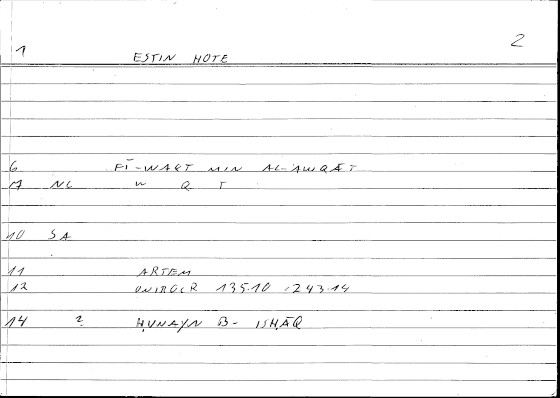 1 ESTIN HOTE 2
6 FĪ-WAQT MIN AL-AWQĀT
7 NC W Q T
10 SA
11 ARTEM
12 ONIROCR 135.10 - 243.14
14 2 ḤUNAYN B- ISḤĀQ